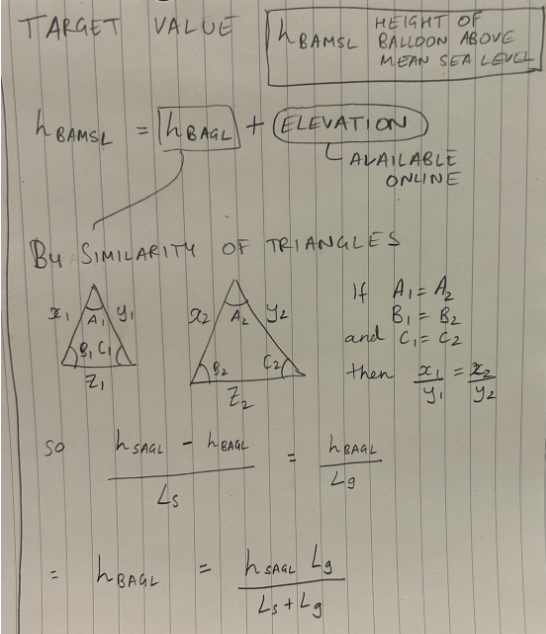 TARGET VALUE
h BAMSL HEIGHT OF
BALLOON ABOVE
MEAN SEA LEVEL
h BAMSL = h BAGL + ELEVATION
AVAILABLE
ONLINE
By SIMILARITY OF TRIANGLES
x1 A1 y1
B1 C1
Z1
x2 A2 y2
B2 C2
Z2
If A1 = A2
B1 = B2
and C1 = C2
then x1/y1 = x2/y2
so (h SAGL - h BAGL)/Ls = h BAGL/Lg
= h BAGL = h SAGL Lg/(Ls + Lg)